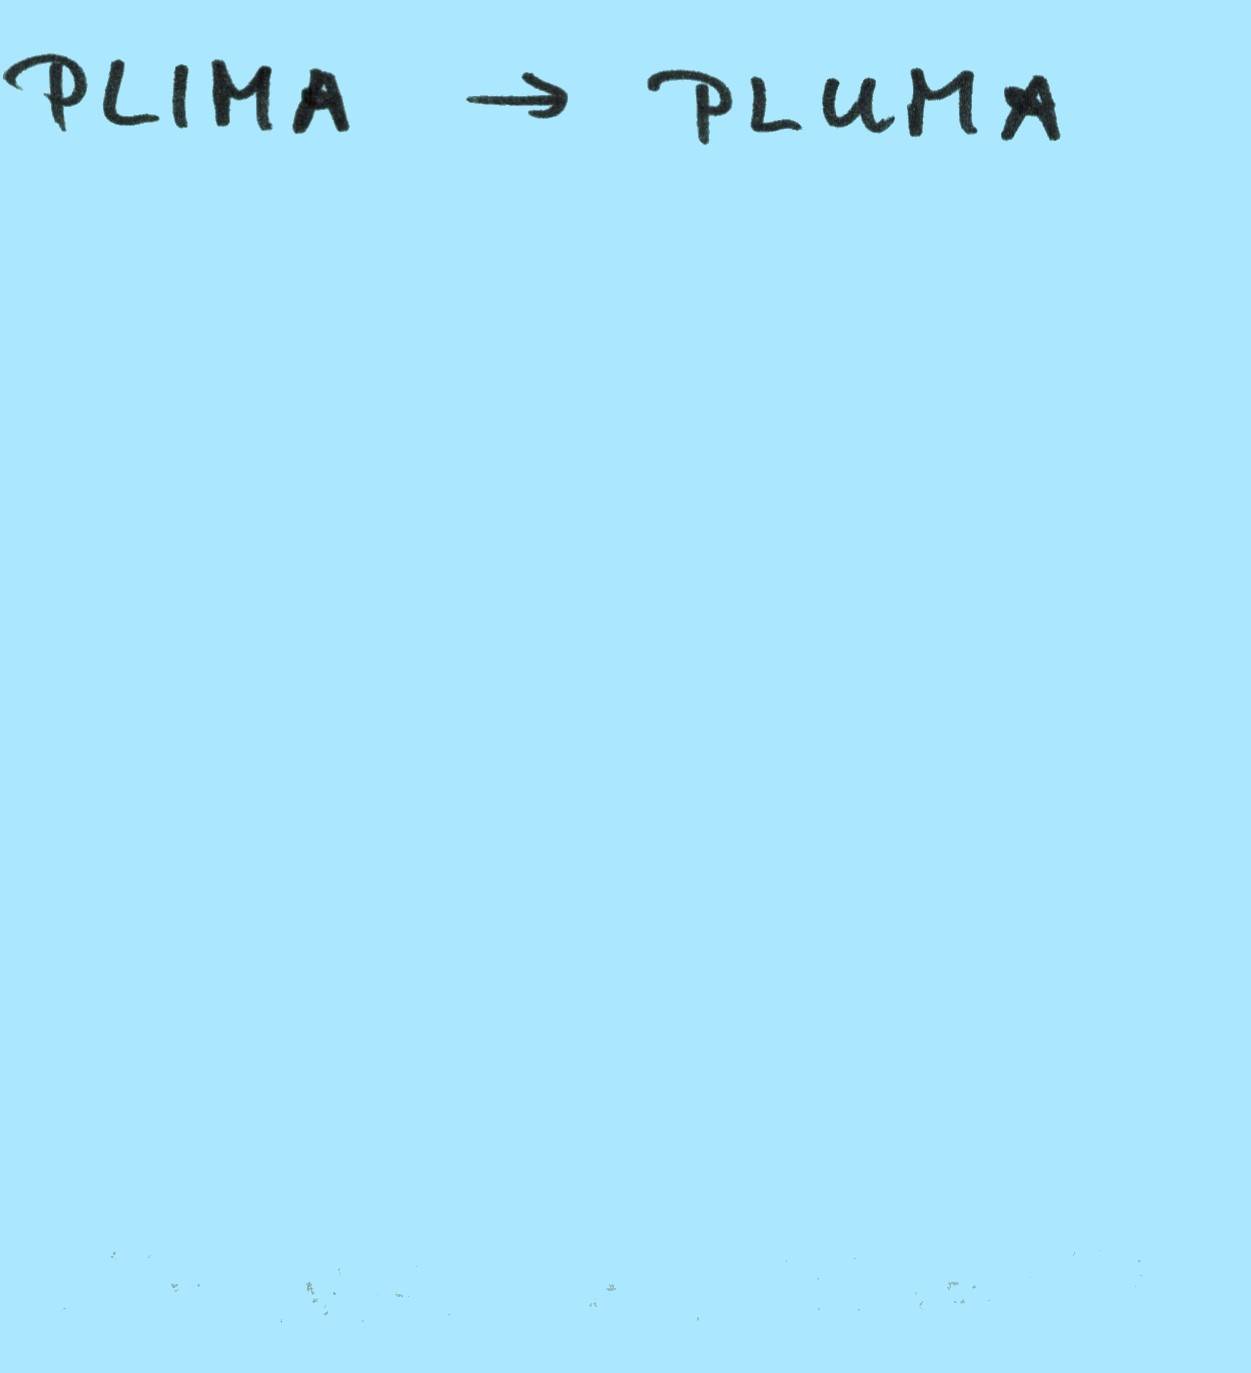 PLIMA → PLUMA